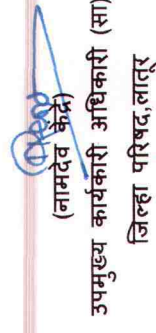 (नामदेव केंद्रे)
उपमुख्य कार्यकारी अधिकारी (सा)
जिल्हा परिषद,लातूर